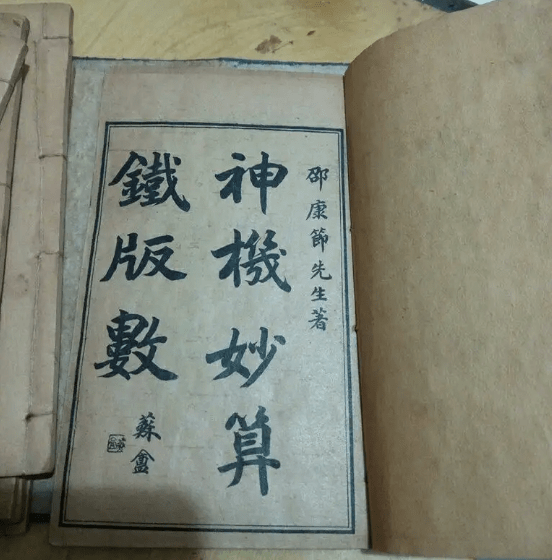 邵康節先生著
神機妙算
鐵版數
蘇盦